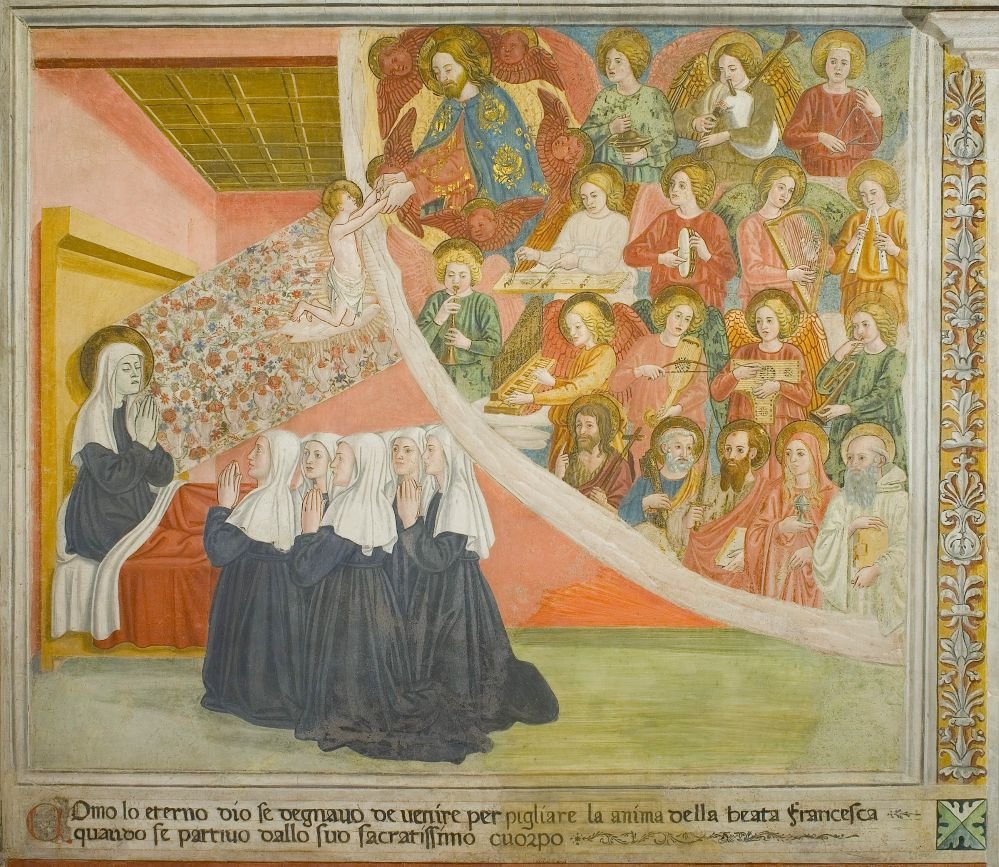 Como lo eterno dio se degnavo de venire per pigliare la anima della beata francesca
quando se partivo dallo suo sacratissimo cuorpo